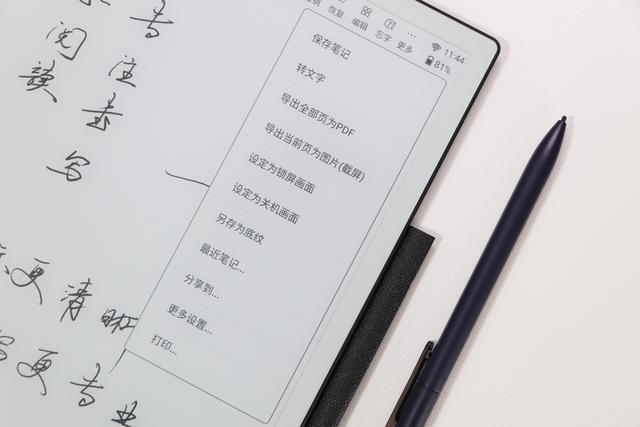 撤销 恢复 编辑 忘字 更多
11:44
81%
保存笔记
转文字
导出全部页为PDF
导出当前页为图片(截屏)
设定为锁屏画面
设定为关机画面
另存为底纹
最近笔记...
分享到...
更多设置...
打印...
书
阅
读 注
书
写
更 清 晰
写 更 专 业